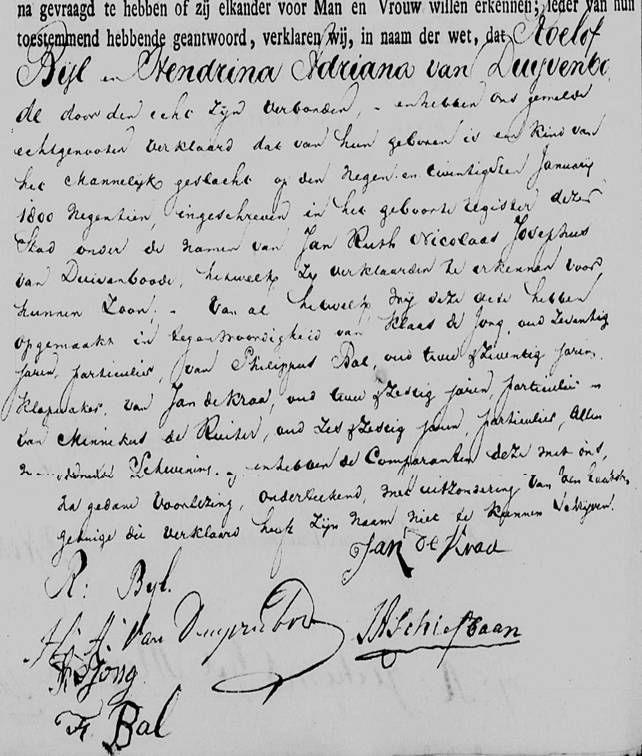 na gevraagd te hebben of zij elkander voor Man en Vrouw willen erkennen; ieder van hun
toestemmend hebbende geantwoord, verklaren wij, in naam der wet, dat Roelof
Bijl en Hendrina Adriana van Duijvenbo
de door den echt zijn verbonden, - en hebben ons gemelde
echtgenooten verklaard dat van hun geboren is een kind van
het Mannelijk geslacht op den Negen en twintigsten Januarij
1800 Negentien, ingeschreven in het geboorte register dezer
Stad onder de namen van Jan Ruth Nicolaas Josephus
van Duivenboode, hetwelk zij verklaarden te erkennen voor
hunnen Zoon. - Van al hetwelk wij deze acte hebben
opgemaakt in tegenwoordigheid van Klaas de Jong, oud Zeventig
jaren, particulier, van Philippus Bal, oud twee & Zeventig jaren,
Klapwaker, van Jan de Kraa, oud twee & Zestig jaren, particulier en
van Minnekus de Ruiter, oud Zes & Zestig jaren, particulier, Allen
en hebben de Comparanten deze met ons,
na gedane voorlezing, onderteekend, met uitzondering van den laatsten
getuige die verklaard heeft Zijn naam niet te kunnen Schrijven.
Jan de Kraa
R: Bijl.
H. A. Van Duijvenbode
JHSchiefbaan
K D Jong
F. Bal